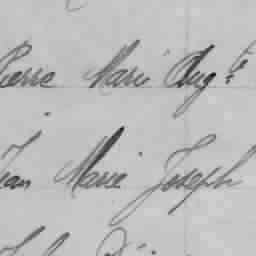 Pierre Marie Aug.te
Jean Marie Joseph